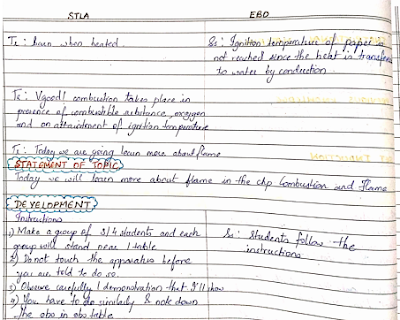 STLA EBO
T: burn when heated
Ss: Ignition temperature of paper is
not reached since the heat is transfered
to water by conduction.
T: Vgood! combustion takes place in
presence of combustible substance, oxygen
and on attainment of ignition temperature
T: Today we are going learn more about flame
STATEMENT OF TOPIC
Today we will learn more about flame in the chp Combustion and Flame
DEVELOPMENT
Instructions
1) Make a group of 3/4 students and each
group will stand near 1 table
2) Do not touch the apparatus before
you are told to do so
3) Observe carefully 1 demonstration that I'll show
4) You have to do similarly & note down
the obs in obs table
Ss: Students follow the
instructions